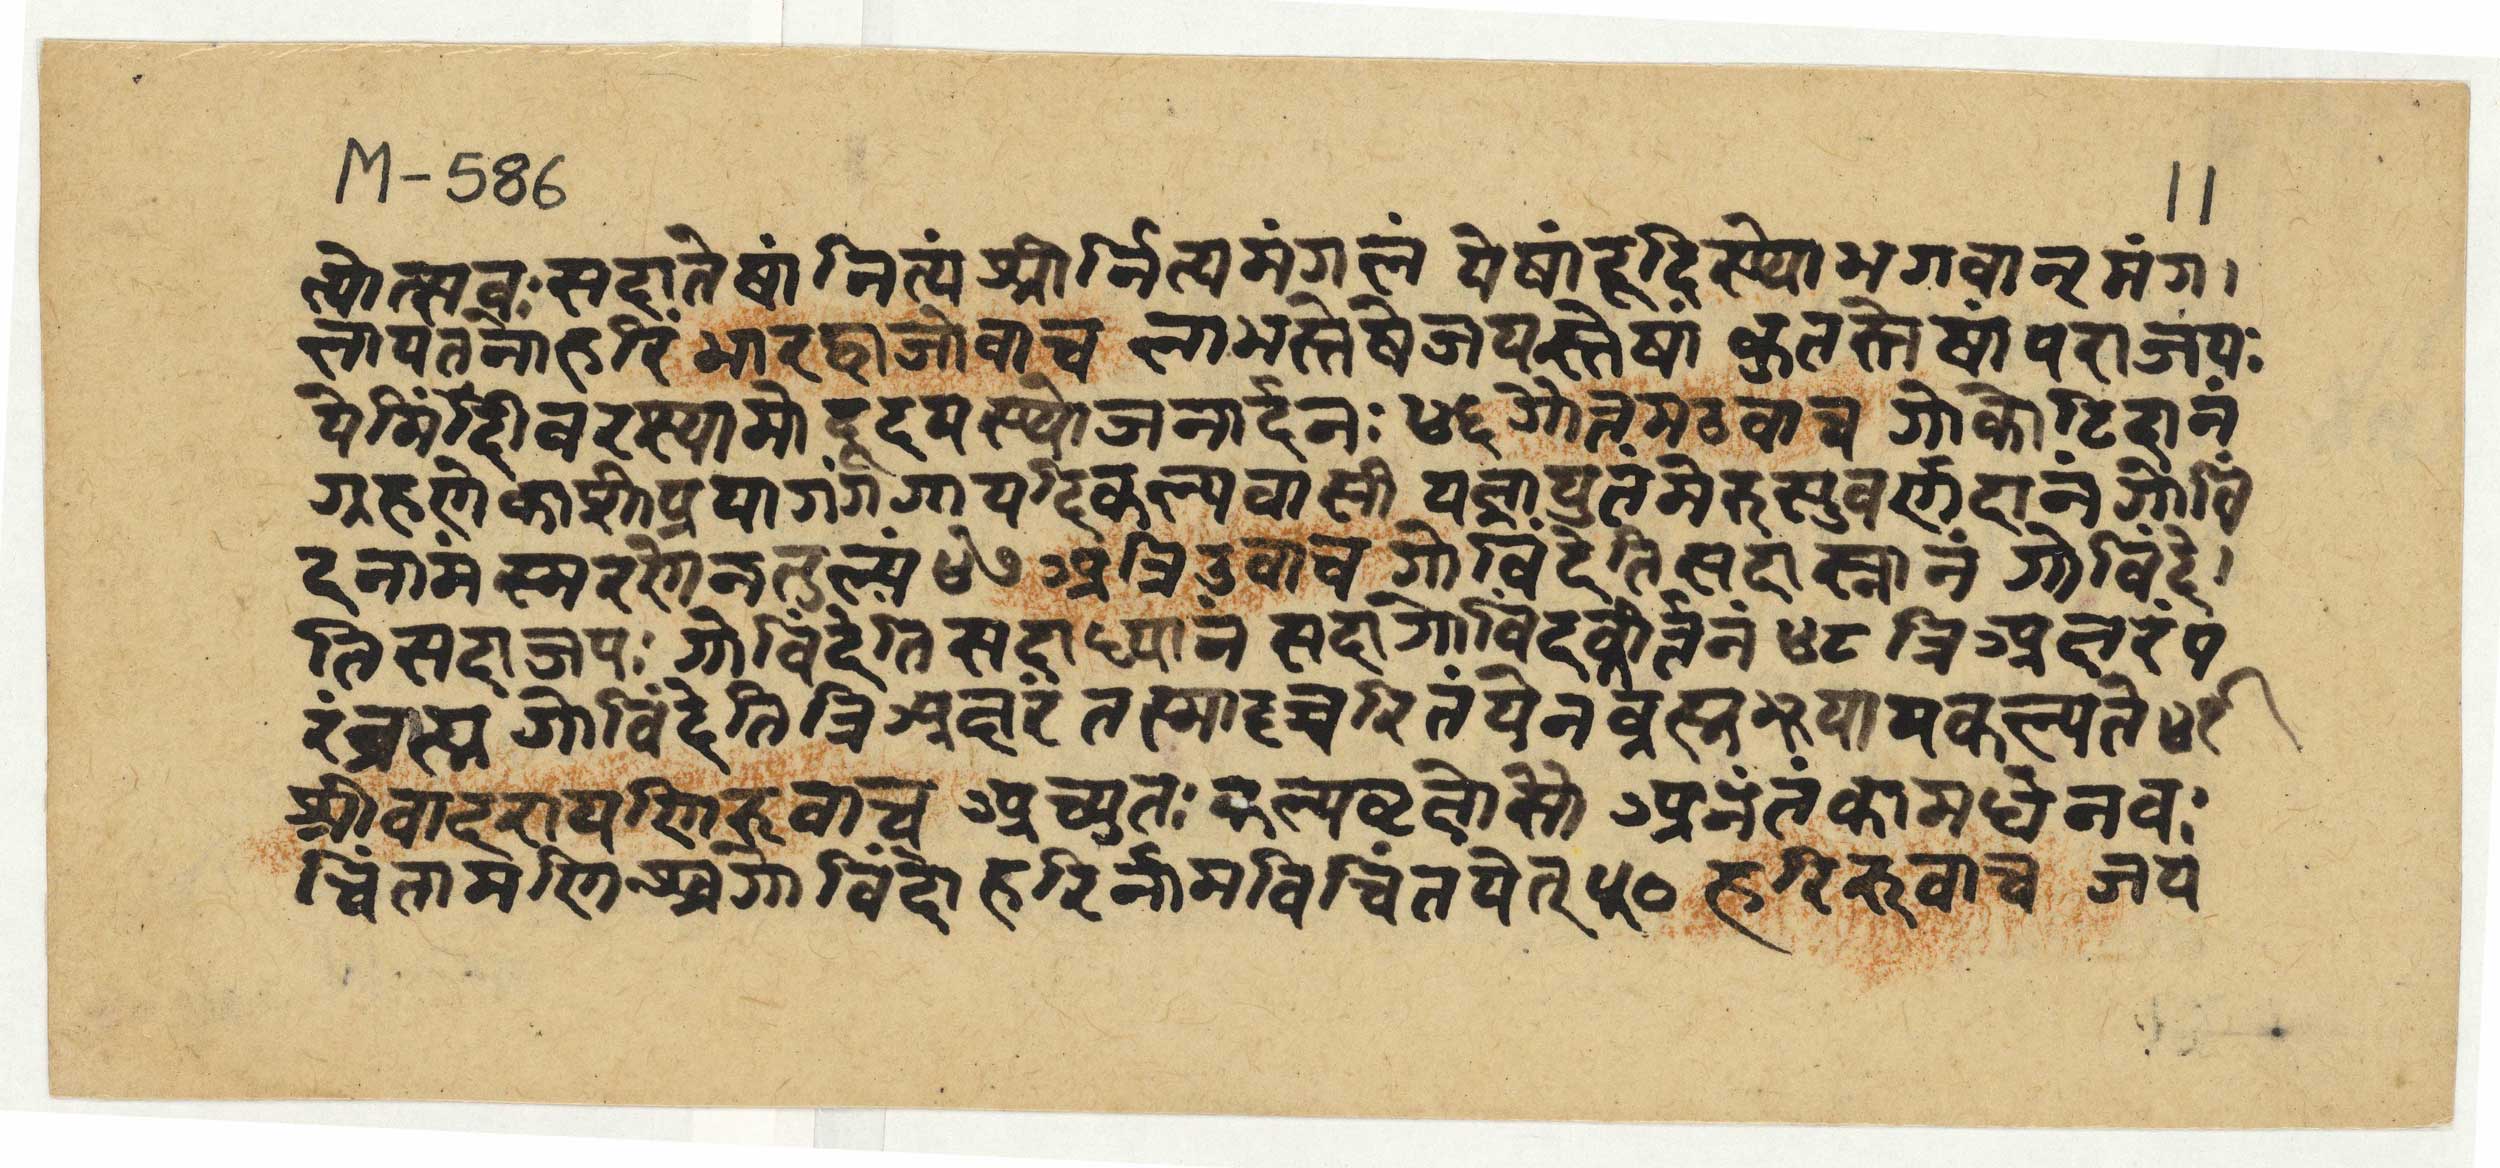 M-586
11
त्योत्सवः सदा तेषां नित्यं श्रीर्नित्यमंगलं येषां हृदिस्थो भगवान् मंग।
लायतनो हरिं भारद्वाजोवाच लाभस्तेषे जयस्तेषां कुतस्तेषां पराजयः
येमिंदीवरश्यामो हृदयस्थो जनार्दनः ४६ गोत्तमउवाच गोकोटिदानं
ग्रहणे काशीप्रयागगंगायदिकल्पवासी यज्ञायुतंमेरुसुवर्णदानं गोविं
दनामं स्मरणेनतुल्यं ४७ अत्रिउवाच गोविंदेति सदा स्नानं गोविंदे।
ति सदा जपः गोविंदेति सदा ध्यानं सदा गोविंदकीर्तनं ४८ त्रिअक्षरंप
रंब्रह्म गोविंदेति त्रिअक्षरं तस्मादुच्चरितं येन ब्रह्मभूयायकल्पते ४९
श्रीवादरायणिरुवाच अच्युतः कल्पवृक्षोसो अनंतं कामधेनवः
चिंतामणिश्चगोविंदो हरिर्नामविचिंतयेत् ५० हरिरुवाच जय